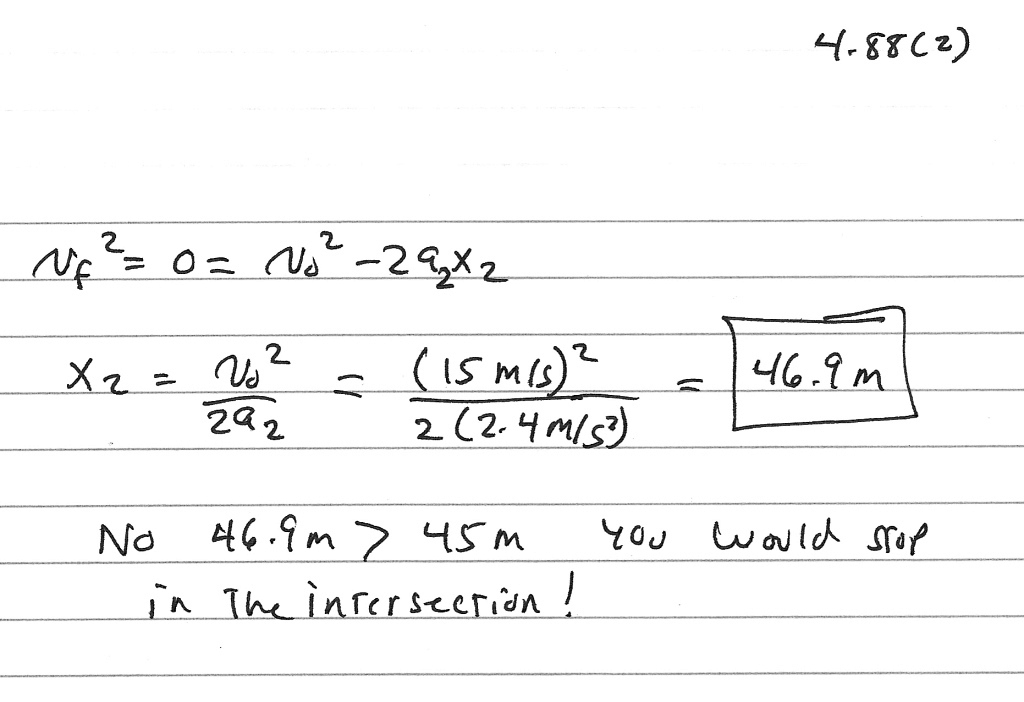 4.88(2)
v_f² = 0 = v₀² - 2a₂x₂
x₂ = v₀² / 2a₂ = (15 m/s)² / 2(2.4 m/s²) = 46.9 m
No 46.9m > 45m you would stop
in the intersection!